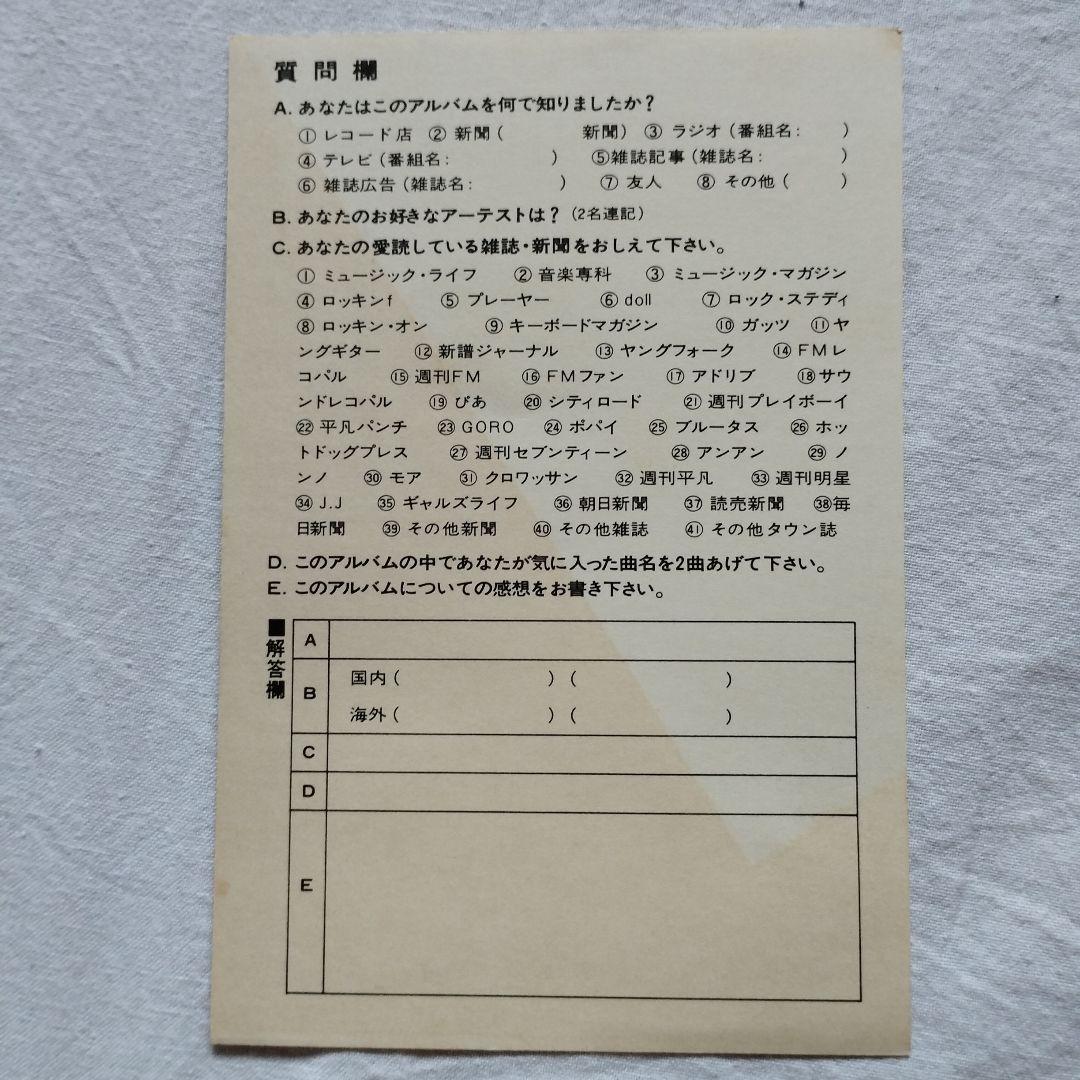 質問欄
A. あなたはこのアルバムを何で知りましたか？
① レコード店 ② 新聞（ 新聞） ③ ラジオ（番組名： ）
④ テレビ（番組名： ） ⑤雑誌記事（雑誌名： ）
⑥ 雑誌広告（雑誌名： ） ⑦ 友人 ⑧ その他（ ）
B. あなたのお好きなアーテストは？（2名連記）
C. あなたの愛読している雑誌・新聞をおしえて下さい。
① ミュージック・ライフ ② 音楽専科 ③ ミュージック・マガジン
④ ロッキンf ⑤ プレーヤー ⑥ doll ⑦ ロック・ステディ
⑧ ロッキン・オン ⑨ キーボードマガジン ⑩ ガッツ ⑪ヤ
ングギター ⑫ 新譜ジャーナル ⑬ ヤングフォーク ⑭ FMレ
コパル ⑮ 週刊FM ⑯ FMファン ⑰ アドリブ ⑱サウ
ンドレコパル ⑲ ぴあ ⑳ シティロード ㉑ 週刊プレイボーイ
㉒ 平凡パンチ ㉓ GORO ㉔ ポパイ ㉕ ブルータス ㉖ ホッ
トドッグプレス ㉗ 週刊セブンティーン ㉘ アンアン ㉙ ノ
ンノ ㉚ モア ㉛ クロワッサン ㉜ 週刊平凡 ㉝ 週刊明星
㉞ J.J ㉟ ギャルズライフ ㊱ 朝日新聞 ㊲ 読売新聞 ㊳毎
日新聞 ㊴ その他新聞 ㊵ その他雑誌 ㊶ その他タウン誌
D. このアルバムの中であなたが気に入った曲名を2曲あげて下さい。
E. このアルバムについての感想をお書き下さい。
■解答欄
A
B
国内（ ）（ ）
海外（ ）（ ）
C
D
E